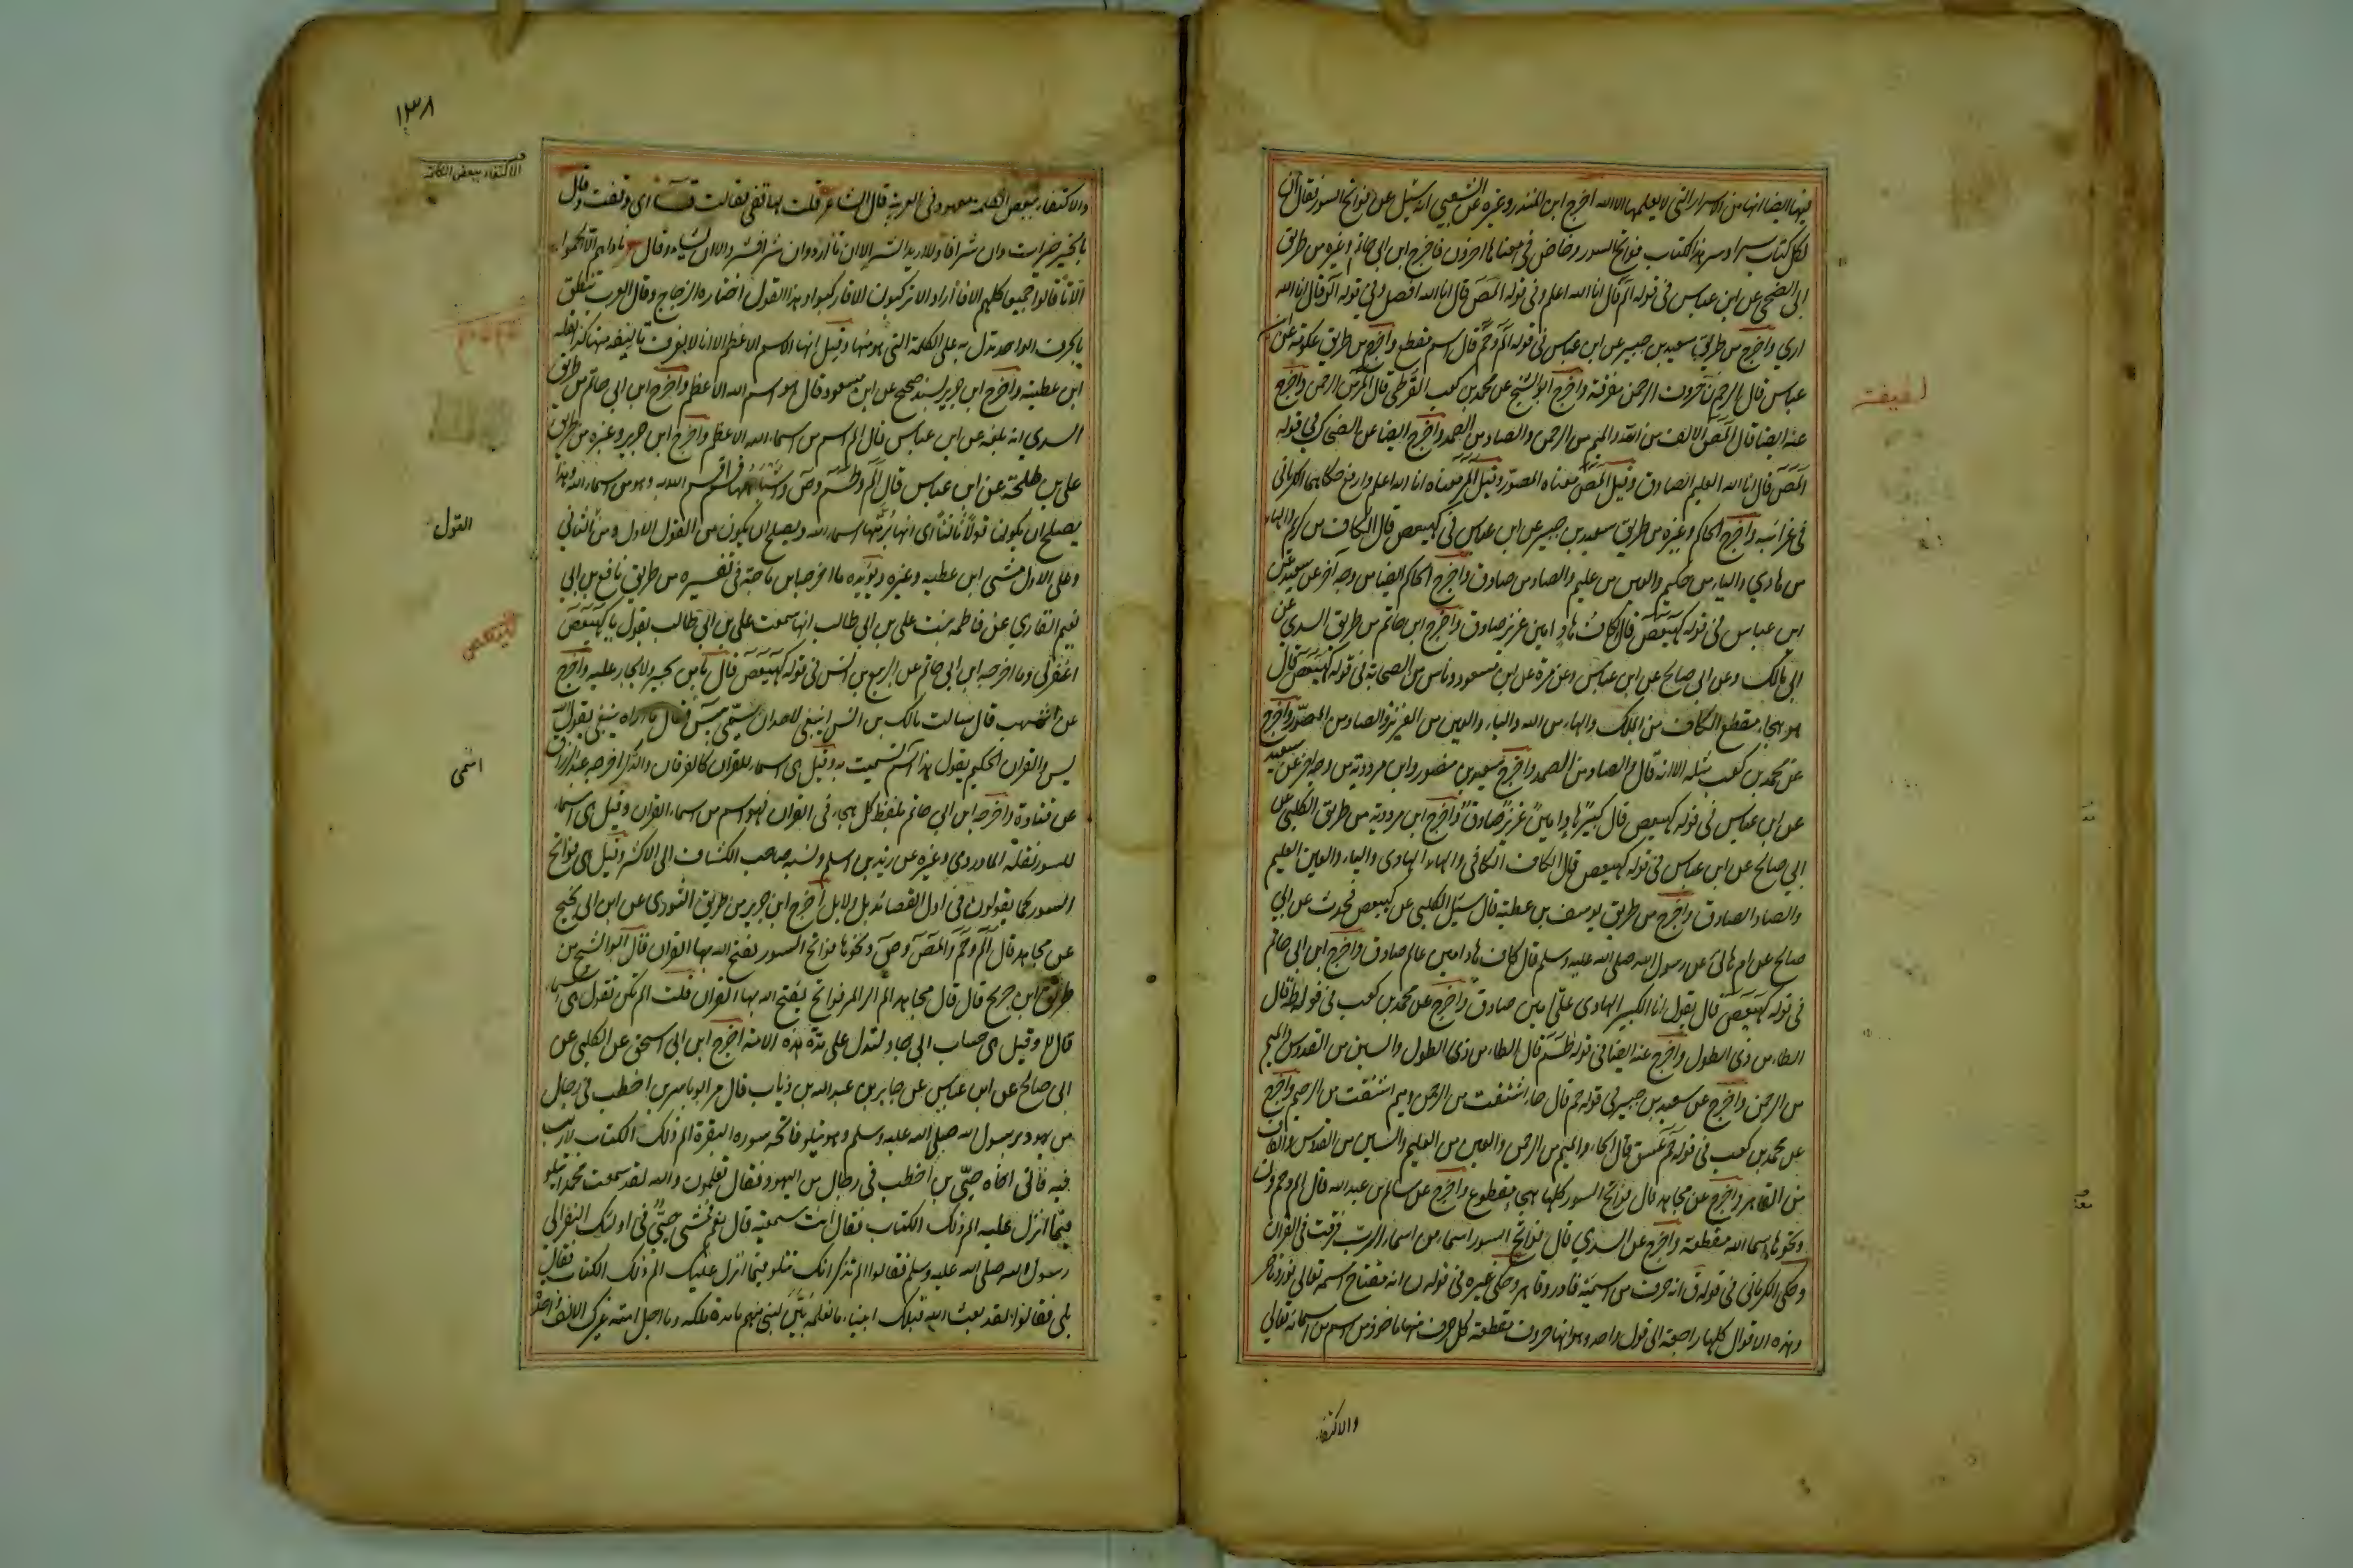 فيها ايضا انها من الاسرار التي لا يعلمها الا الله اخرج ابن المنذر وغيره عن الشعبي انه سئل عن فواتح السور فقال ان
لكل كتاب سرا وسر هذا الكتاب فواتح السور وخاض في معناها اخرون فاخرج ابن ابي حاتم وغيره من طريق
ابي الضحى عن ابن عباس في قوله الم قال انا الله اعلم وفي قوله المص قال انا الله افصل وفي قوله الر قال انا الله
ارى واخرج من طريق سعيد بن جبير عن ابن عباس في قوله الم وحم قال اسم مقطع واخرج من طريق عكرمة عن ابن
عباس قال الر حم ن حروف الرحمن مفرقة واخرج ابو الشيخ عن محمد بن كعب القرظي قال الر من الرحمن واخرج
عنه ايضا قال المص الالف من الله والميم من الرحمن والصاد من الصمد واخرج ايضا عن الضحاك في قوله
المص قال انا الله العليم الصادق وقيل المص معناه المصور وقيل المر معناه انا الله اعلم وارفع حكاهما الكرماني
في غرائبه واخرج الحاكم وغيره من طريق سعيد بن جبير عن ابن عباس في كهيعص قال الكاف من كريم والهاء
من هادي والياء من حكيم والعين من عليم والصاد من صادق واخرج الحاكم ايضا من وجه آخر عن سعيد عن
ابن عباس في قوله كهيعص قال كاف هاد امين عزيز صادق واخرج ابن حاتم من طريق السدي عن
ابي مالك وعن ابي صالح عن ابن عباس وعن مرة عن ابن مسعود وناس من الصحابة في قوله كهيعص قال
هو هجاء مقطع الكاف من الملك والهاء من الله والياء والعين من العزيز والصاد من المصور واخرج
عن محمد بن كعب مثله الا انه قال والصاد من الصمد واخرج سعيد بن منصور وابن مردويه من وجه اخر عن سعيد
عن ابن عباس في قوله كهيعص قال كبير هاد امين عزيز صادق واخرج ابن مردويه من طريق الكلبي عن
ابي صالح عن ابن عباس في قوله كهيعص قال الكاف الكافي والهاء الهادي والياء والعين العليم
والصاد الصادق واخرج من طريق يوسف بن عطية قال سئل الكلبي عن كهيعص فحدث عن ابي
صالح عن ام هانئ عن رسول الله صلى الله عليه وسلم قال كاف هاد امين عالم صادق واخرج ابن ابي حاتم
في قوله كهيعص قال يقول انا الكبير الهادي علي امين صادق واخرج عن محمد بن كعب في قوله طه قال
الطاء من ذي الطول واخرج عنه ايضا في قوله طسم قال الطاء من ذي الطول والسين من القدوس والميم
من الرحمن واخرج عن سعيد بن جبير في قوله حم قال حاء اشتقت من الرحمن وميم اشتقت من الرحيم واخرج
عن محمد بن كعب في قوله حم عسق قال الحاء والميم من الرحمن والعين من العليم والسين من القدوس والقاف
من القاهر واخرج عن مجاهد قال فواتح السور كلها هجاء مقطوع واخرج عن سالم بن عبد الله قال الم وحم ون
ونحوها اسماء الله مقطعة واخرج عن السدي قال فواتح السور اسماء من اسماء الرب فرقت في القران
وحكى الكرماني في قوله ق انه حرف من اسمه قادر وقاهر وحكى غيره في قوله ن انه مفتاح اسمه تعالى نور وناصر
وهذه الاقوال كلها راجعة الى قول واحد وهو انها حروف مقطعة كل حرف منها ماخوذ من اسم من اسمائه تعالى
والاكتفاء
١٣٨
الاكتفاء ببعض الكلمة
والاكتفاء ببعض الكلمة معهود في العربية قال الشاعر قلت لها قفي فقالت قاف اي وقفت وقال
بالخير خيرات وان شرا فا ولا اريد الشر الا ان تا اراد وان شرا فشر والا ان تشاء وقال ناداهم الا الجموا
الا تا قالوا جميعا كلهم الا فا اراد الا تركبون الا فاركبوا وهذا القول اختاره الزجاج وقال العرب تنطق
بالحرف الواحد تدل به على الكلمة التي هو منها وقيل انها الاسم الاعظم الا انا لا نعرف تاليفه منها كذا نقله
ابن عطية واخرج ابن جرير بسند صحيح عن ابن مسعود قال هو اسم الله الاعظم واخرج ابن ابي حاتم من طريق
السدي انه بلغه عن ابن عباس قال الم اسم من اسماء الله الاعظم واخرج ابن جرير وغيره من طريق
علي بن طلحة عن ابن عباس قال الم وطسم وص واشباهها قسم اقسم الله به وهو من اسماء الله وهذا
يصلح ان يكون قولا ثالثا اي انها برمتها اسماء الله ويصلح ان يكون من القول الاول ومن الثاني
القول
وعلى الاول مشى ابن عطية وغيره ويؤيده ما اخرجه ابن ماجة في تفسيره من طريق نافع بن ابي
نعيم القاري عن فاطمة بنت علي بن ابي طالب انها سمعت علي بن ابي طالب يقول يا كهيعص
كهيعص
اغفر لي وما اخرجه ابن ابي حاتم عن الربيع بن انس في قوله كهيعص قال يا من يجير ولا يجار عليه واخرج
عن اشهب قال سالت مالك بن انس اينبغي لاحد ان يسمى يس فقال ما اراه ينبغي يقول الله
يس والقران الحكيم يقول هذا اسم تسميت به وقيل هي اسماء للقران كالفرقان والذكر اخرجه عبد الرزاق
اسمى
عن قتادة واخرجه ابن ابي حاتم بلفظ كل هجاء في القران فهو اسم من اسماء القران وقيل هي اسماء
للسور نقله الماوردي وغيره عن زيد بن اسلم ونسبه صاحب الكشاف الى الاكثر وقيل هي فواتح
السور كما يقولون في اول القصائد بل ولا بل اخرج ابن جرير من طريق الثوري عن ابن ابي نجيح
عن مجاهد قال الم وحم والمص وص ونحوها فواتح السور يفتح الله بها القران قال ابو الشيخ من
طريق ابن جريج قال قال مجاهد الم الر المر فواتح يفتح الله بها القران قلت الم تكن تقول هي اسماء
قال لا وقيل هي حساب ابي جاد لتدل على مدة هذه الامة اخرج ابن ابي اسحق عن الكلبي عن
ابي صالح عن ابن عباس عن جابر بن عبد الله بن ذياب قال مر ابو ياسر بن اخطب في رجال
من يهود برسول الله صلى الله عليه وسلم وهو يتلو فاتحة سورة البقرة الم ذلك الكتاب لا ريب
فيه فاتى اخاه حيي بن اخطب في رجال من اليهود فقال تعلمون والله لقد سمعت محمدا يتلو
فيما انزل عليه الم ذلك الكتاب فقال انت سمعته قال نعم فمشى حيي في اولئك النفر الى
رسول الله صلى الله عليه وسلم فقالوا الم تذكر انك تتلو فيما انزل عليك الم ذلك الكتاب فقال
بلى فقالوا لقد بعث الله قبلك انبياء ما نعلمه بين لنبي منهم ما مدة ملكه وما اجل امته غيرك الالف واحدة